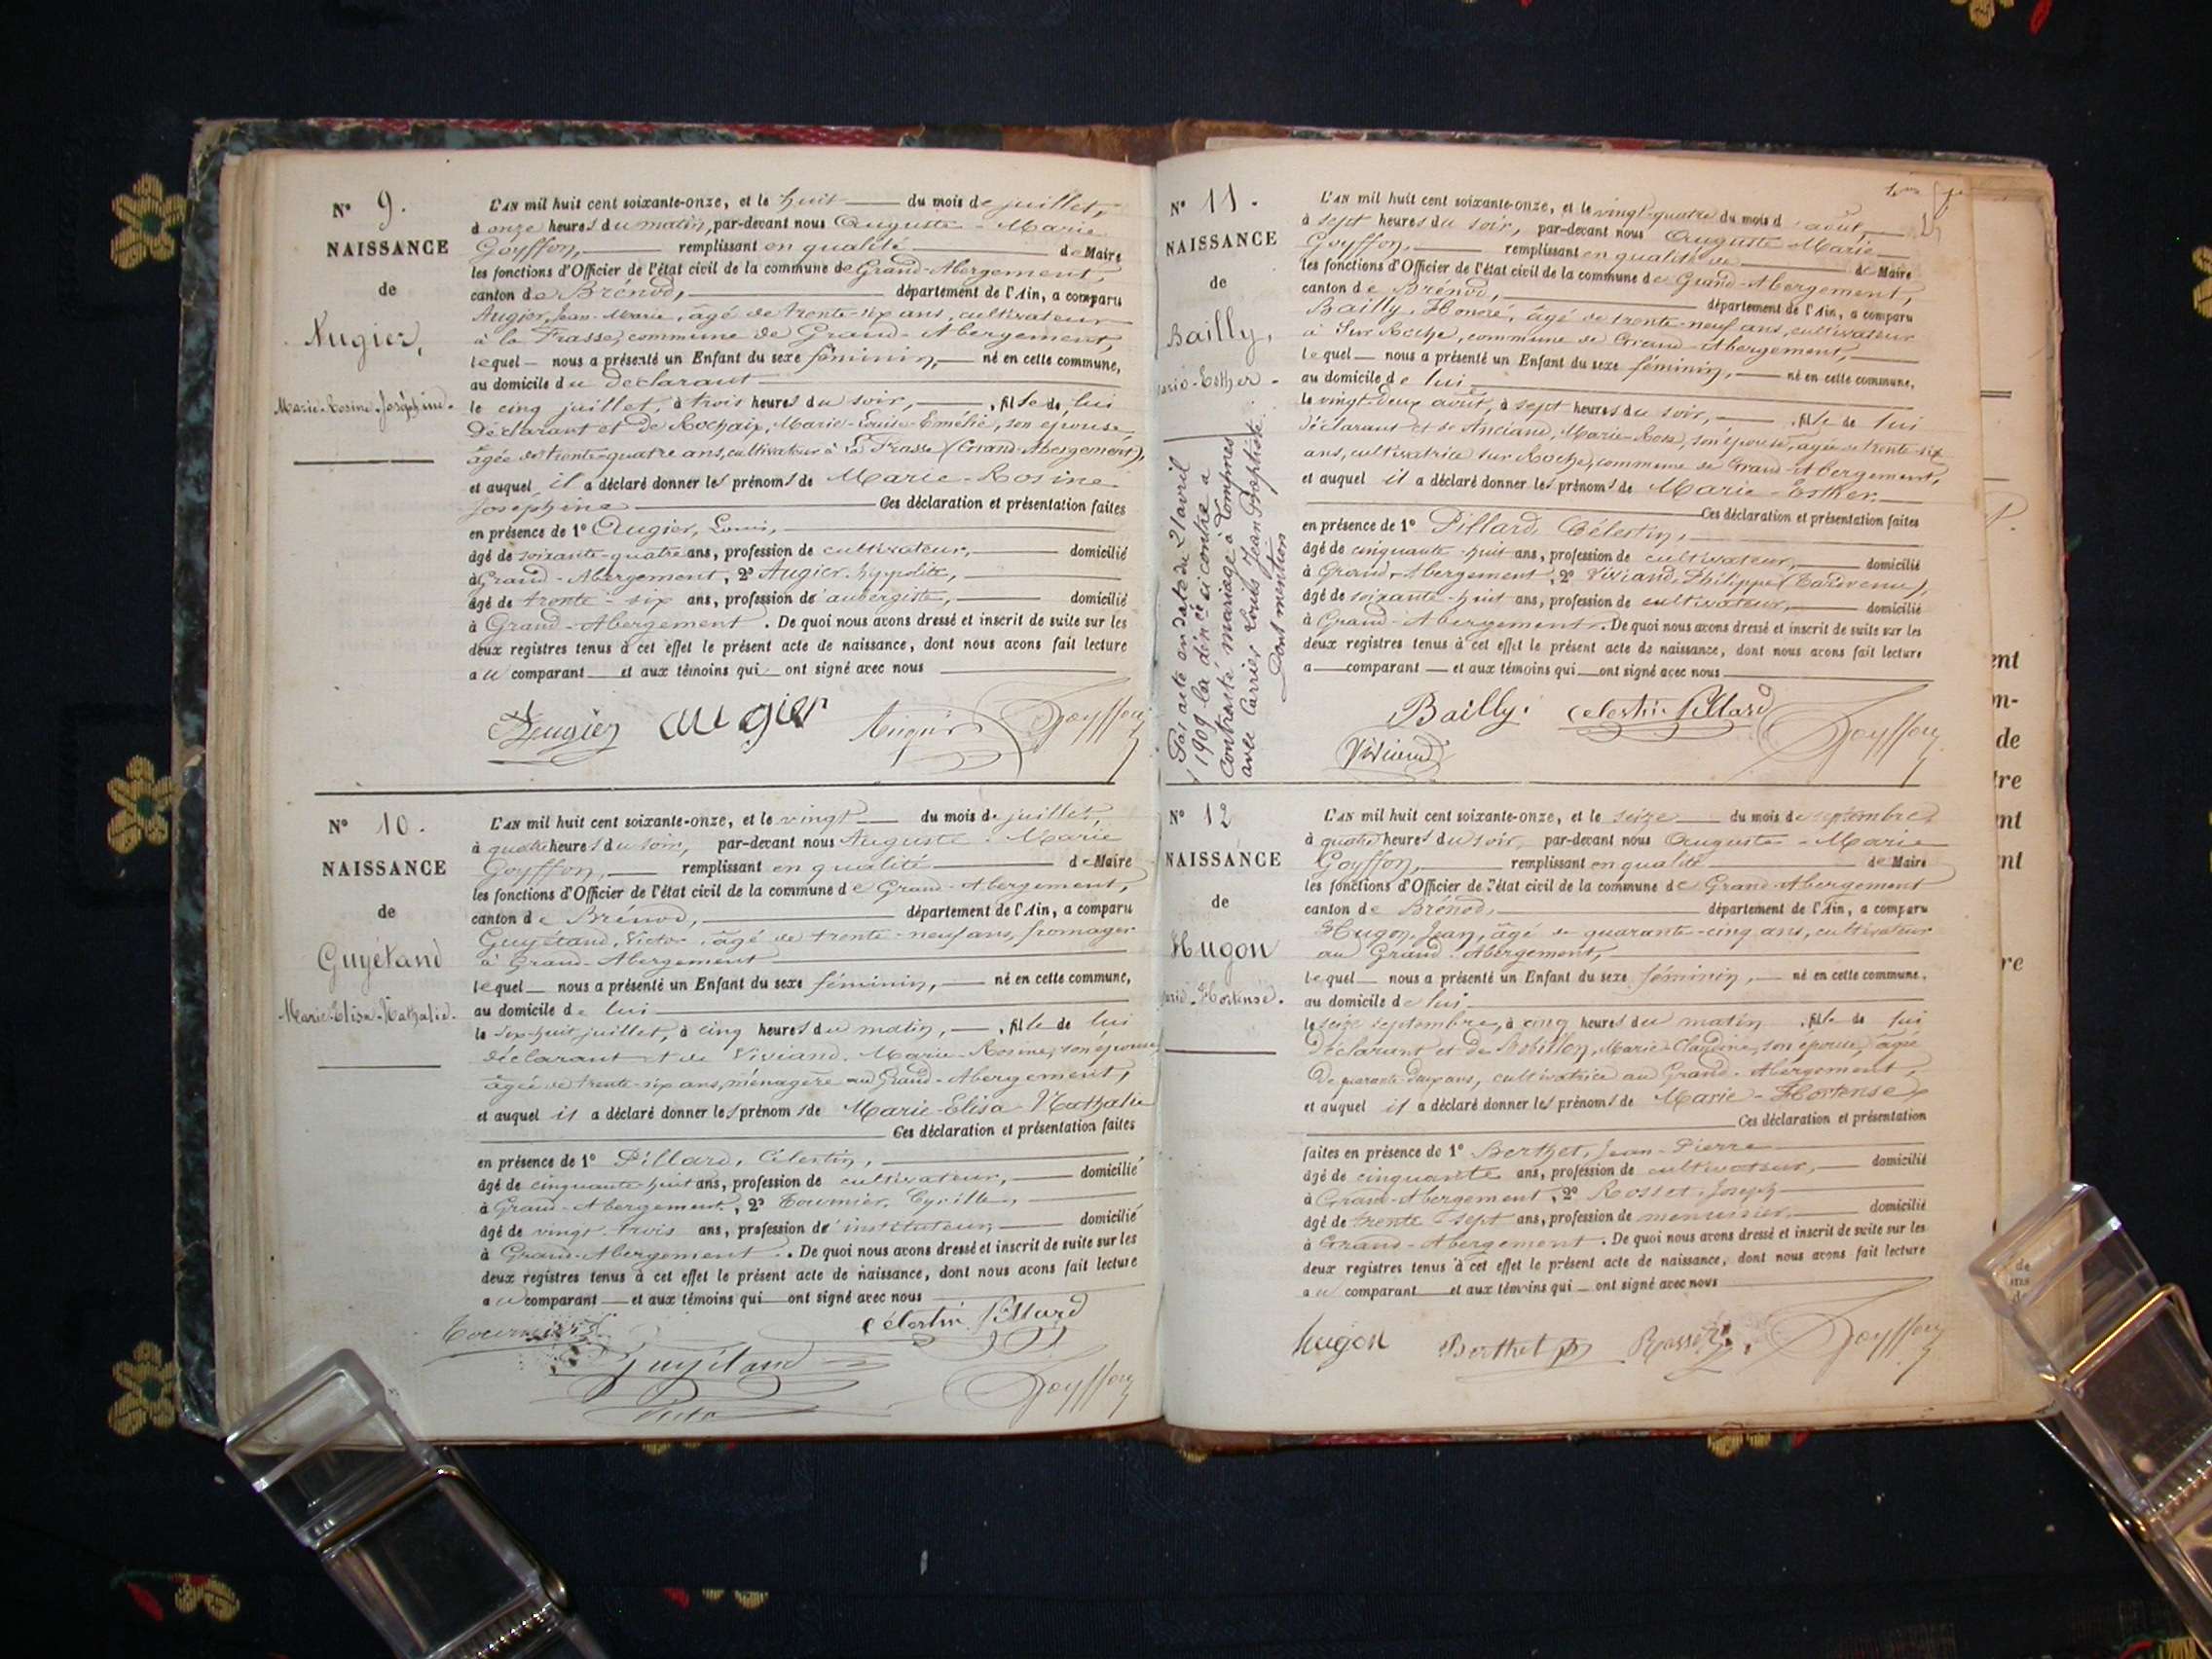 N° 9.
NAISSANCE
de
Augier,
Marie-Rosine-Joséphine.
L'AN mil huit cent soixante-onze, et le huit du mois de juillet,
à onze heures du matin, par-devant nous Auguste-Marie
Goyffon, remplissant en qualité de Maire
les fonctions d'Officier de l'état civil de la commune de Grand-Abergement,
canton de Brénod, département de l'Ain, a comparu
Augier, Jean-Marie, âgé de trente-six ans, cultivateur
à la Frasse, commune de Grand-Abergement,
lequel nous a présenté un Enfant du sexe féminin, né en cette commune,
au domicile du déclarant
le cinq juillet, à trois heures du soir, , fille de lui
Déclarant et de Rochaix, Marie-Louise-Emélie, son épouse,
âgée de trente-quatre ans, cultivateur à la Frasse (Grand-Abergement),
et auquel il a déclaré donner les prénoms de Marie-Rosine
Joséphine Ces déclaration et présentation faites
en présence de 1° Augier, Louis,
âgé de soixante-quatre ans, profession de cultivateur, domicilié
à Grand-Abergement, 2° Augier, hippolite,
âgé de trente-six ans, profession de aubergiste, domicilié
à Grand-Abergement. De quoi nous avons dressé et inscrit de suite sur les
deux registres tenus à cet effet le présent acte de naissance, dont nous avons fait lecture
au comparant et aux témoins qui ont signé avec nous
Augier augier Augier Goyffon
N° 10.
NAISSANCE
de
Guyétand
Marie-Elisa-Nathalie.
L'AN mil huit cent soixante-onze, et le vingt du mois de juillet,
à quatre heures du soir, par-devant nous Auguste-Marie
Goyffon, remplissant en qualité de Maire
les fonctions d'Officier de l'état civil de la commune de Grand-Abergement,
canton de Brénod, département de l'Ain, a comparu
Guyétand, Victor, âgé de trente-neuf ans, fromager
à Grand-Abergement
lequel nous a présenté un Enfant du sexe féminin, né en cette commune,
au domicile de lui
le dix-huit juillet, à cinq heures du matin, , fille de lui
déclarant et de Viviand, Marie-Rosine, son épouse,
âgée de trente-six ans, ménagère au Grand-Abergement,
et auquel il a déclaré donner les prénoms de Marie-Elisa-Nathalie
Ces déclaration et présentation faites
en présence de 1° Pillard, Célestin,
âgé de cinquante-huit ans, profession de cultivateur, domicilié
à Grand-Abergement, 2° Tournier, Cyrille,
âgé de vingt-trois ans, profession de instituteur, domicilié
à Grand-Abergement. De quoi nous avons dressé et inscrit de suite sur les
deux registres tenus à cet effet le présent acte de naissance, dont nous avons fait lecture
au comparant et aux témoins qui ont signé avec nous
Tournier célestin Pillard
Guyétand
Victor Goyffon
N° 11.
NAISSANCE
de
Bailly,
Marie-Esther.
Par acte en date du 21 avril
1909 la dénée ci contre a
contracté mariage à
avec Carrier Louis Jean Baptiste.
Dont mention
L'AN mil huit cent soixante-onze, et le vingt-quatre du mois d'août,
à sept heures du soir, par-devant nous Auguste-Marie
Goyffon, remplissant en qualité de de Maire
les fonctions d'Officier de l'état civil de la commune de Grand-Abergement,
canton de Brénod, département de l'Ain, a comparu
Bailly, Honoré, âgé de trente-neuf ans, cultivateur
à Sur Roche, commune de Grand-Abergement,
lequel nous a présenté un Enfant du sexe féminin, né en cette commune,
au domicile de lui
le vingt-deux août, à sept heures du soir, , fille de lui
déclarant et de Anciand, Marie-Rose, son épouse, âgée de trente-six
ans, cultivatrice sur Roche, commune de Grand-Abergement,
et auquel il a déclaré donner les prénoms de Marie-Esther.
Ces déclaration et présentation faites
en présence de 1° Pillard, Célestin,
âgé de cinquante-huit ans, profession de cultivateur, domicilié
à Grand-Abergement, 2° Viviand, Philippe
âgé de soixante-huit ans, profession de cultivateur, domicilié
à Grand-Abergement. De quoi nous avons dressé et inscrit de suite sur les
deux registres tenus à cet effet le présent acte de naissance, dont nous avons fait lecture
a comparant et aux témoins qui ont signé avec nous
Bailly. celestin Pillard Goyffon
Viviand
N° 12
NAISSANCE
de
Hugon
Marie-Hortense.
L'AN mil huit cent soixante-onze, et le seize du mois de septembre,
à quatre heures du soir, par-devant nous Auguste-Marie
Goyffon, remplissant en qualité de Maire
les fonctions d'Officier de l'état civil de la commune de Grand-Abergement
canton de Brénod, département de l'Ain, a comparu
Hugon, Jean, âgé de quarante-cinq ans, cultivateur
au Grand-Abergement,
lequel nous a présenté un Enfant du sexe féminin, né en cette commune,
au domicile de lui
le seize septembre, à cinq heures du matin , fille de lui
Déclarant et de Marie-Claudine, son épouse, âgée
De quarante-deux ans, cultivatrice au Grand-Abergement,
et auquel il a déclaré donner les prénoms de Marie-Hortense
Ces déclaration et présentation
faites en présence de 1° Berthet, Jean-Pierre
âgé de cinquante ans, profession de cultivateur, domicilié
à Grand-Abergement, 2° Rosset, Joseph
âgé de trente-sept ans, profession de menuisier, domicilié
à Grand-Abergement. De quoi nous avons dressé et inscrit de suite sur les
deux registres tenus à cet effet le présent acte de naissance, dont nous avons fait lecture
au comparant et aux témoins qui ont signé avec nous
hugon Berthet Rosset Goyffon